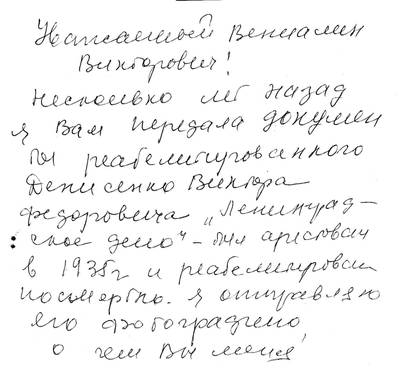 Уважаемый Вениамин
Викторович!
Несколько лет назад
я Вам передала докумен
ты реабелитированного
Денисенко Виктора
Федоровича „Ленинград-
ское дело" - был арестован
в 1935г и реабелитирован
посмертно. Я отправляю
его фотографию
о чем Вы меня